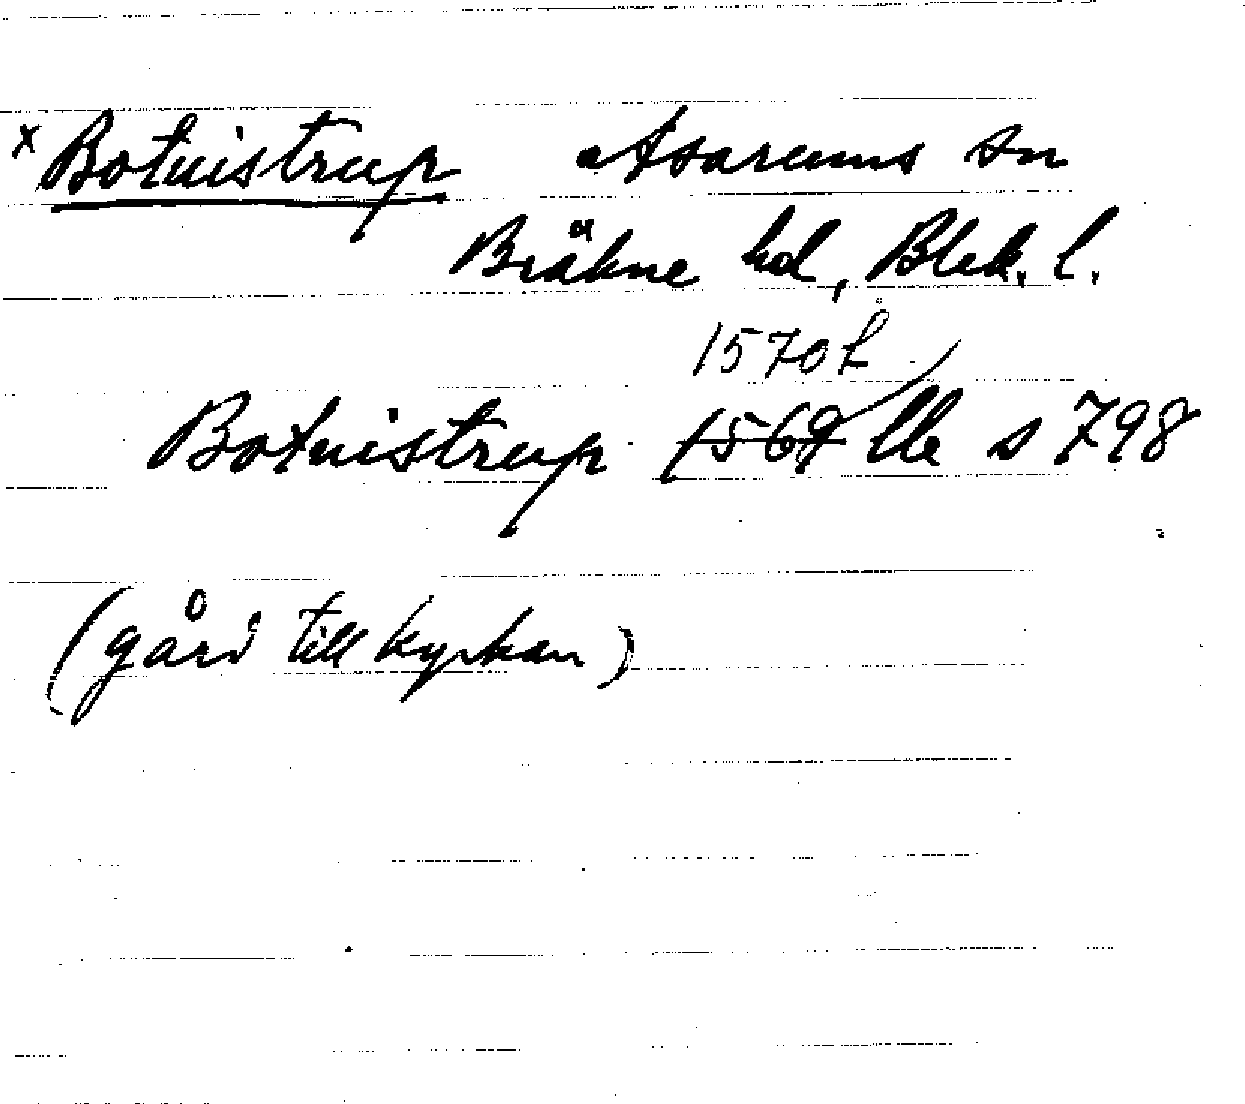 x Botnistrup Asarums sn
Bräkne hd, Blek. l.
1570f
Botnistrup 1569 lb s 798
(gård till kyrkan)